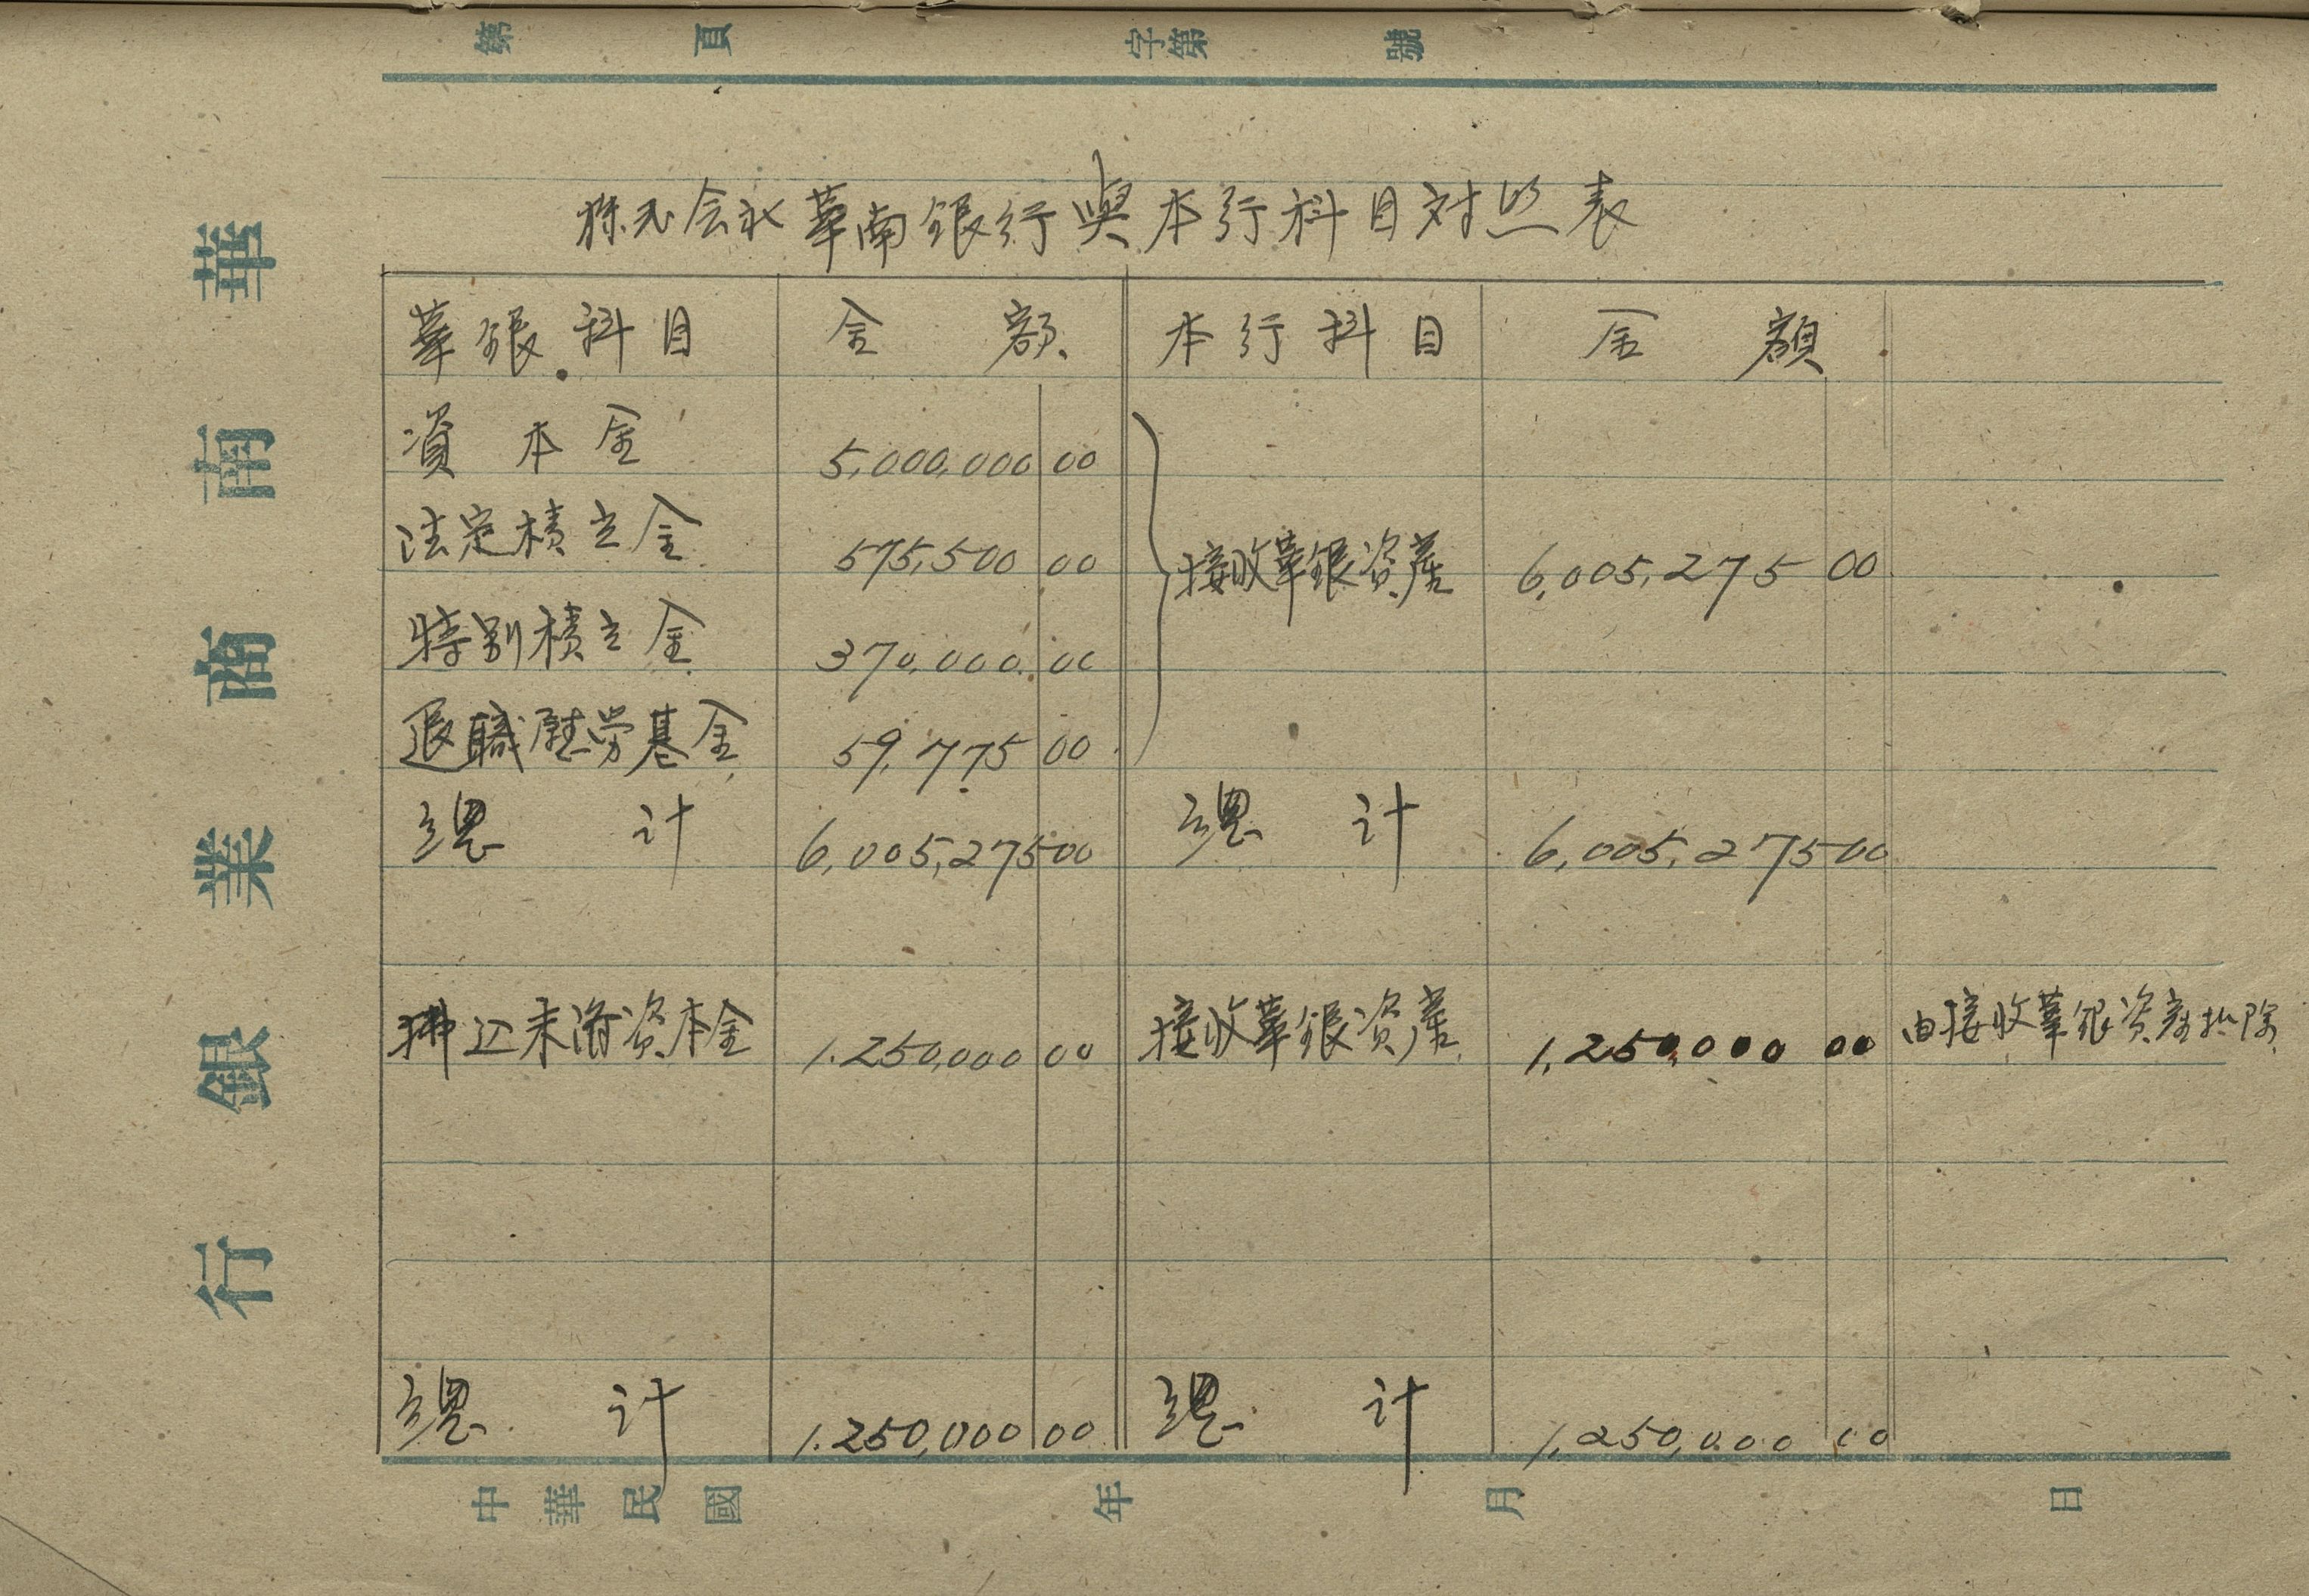 第 頁 字第 號
株式会社華南銀行與本行科目対照表
華銀科目 金額 本行科目 金額
資本金 5,000,000 00
法定積立金 575,500 00 接收華銀資產 6,005,275 00
特別積立金 370,000 00
退職慰労基金 59,775 00
總計 6,005,275 00 總計 6,005,275 00
拂込未済資本金 1.250,000 00 接收華銀資產 1,250,000 00 由接收華銀資產扣除
總計 1.250,000 00 總計 1,250,000 00
中華民國 年 月 日
華南商業銀行